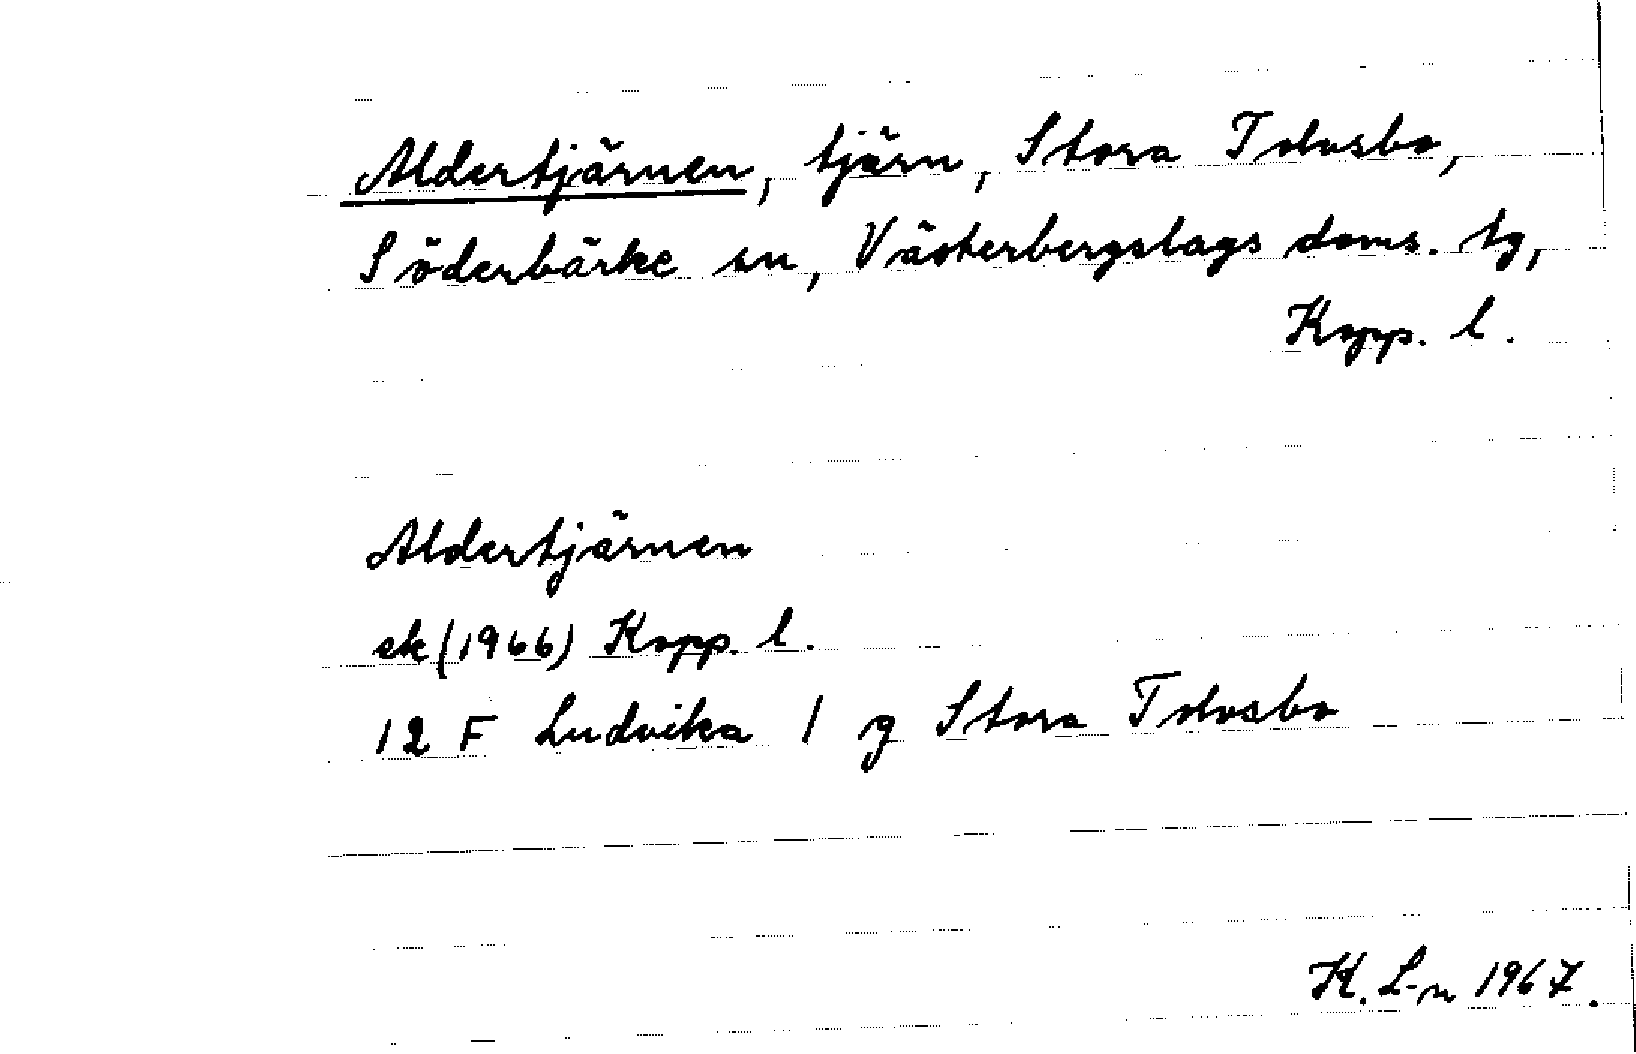 Aldertjärnen, tjärn, Stora Tolvsbo,
Söderbärke sn, Västerbergslags doms. tg,
Kopp. l.
Aldertjärnen
ek (1966) Kopp. l.
12 F Ludvika 1 g Stora Tolvsbo
K. L-n 1967.